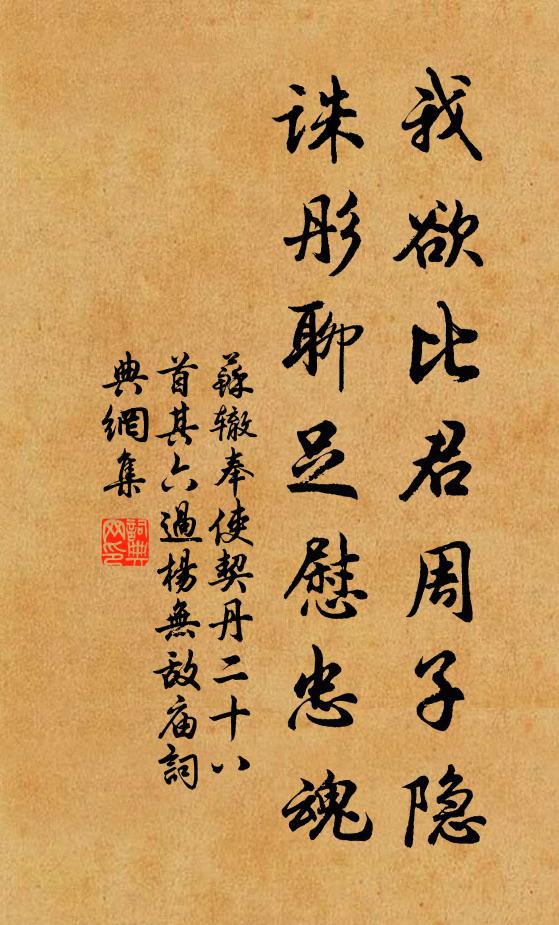 我欲比君周子隐
诛彤聊足慰忠魂
蘇辙奉使契丹二十八
首其六過楊無敌庙詞
典網集
詞典
网印